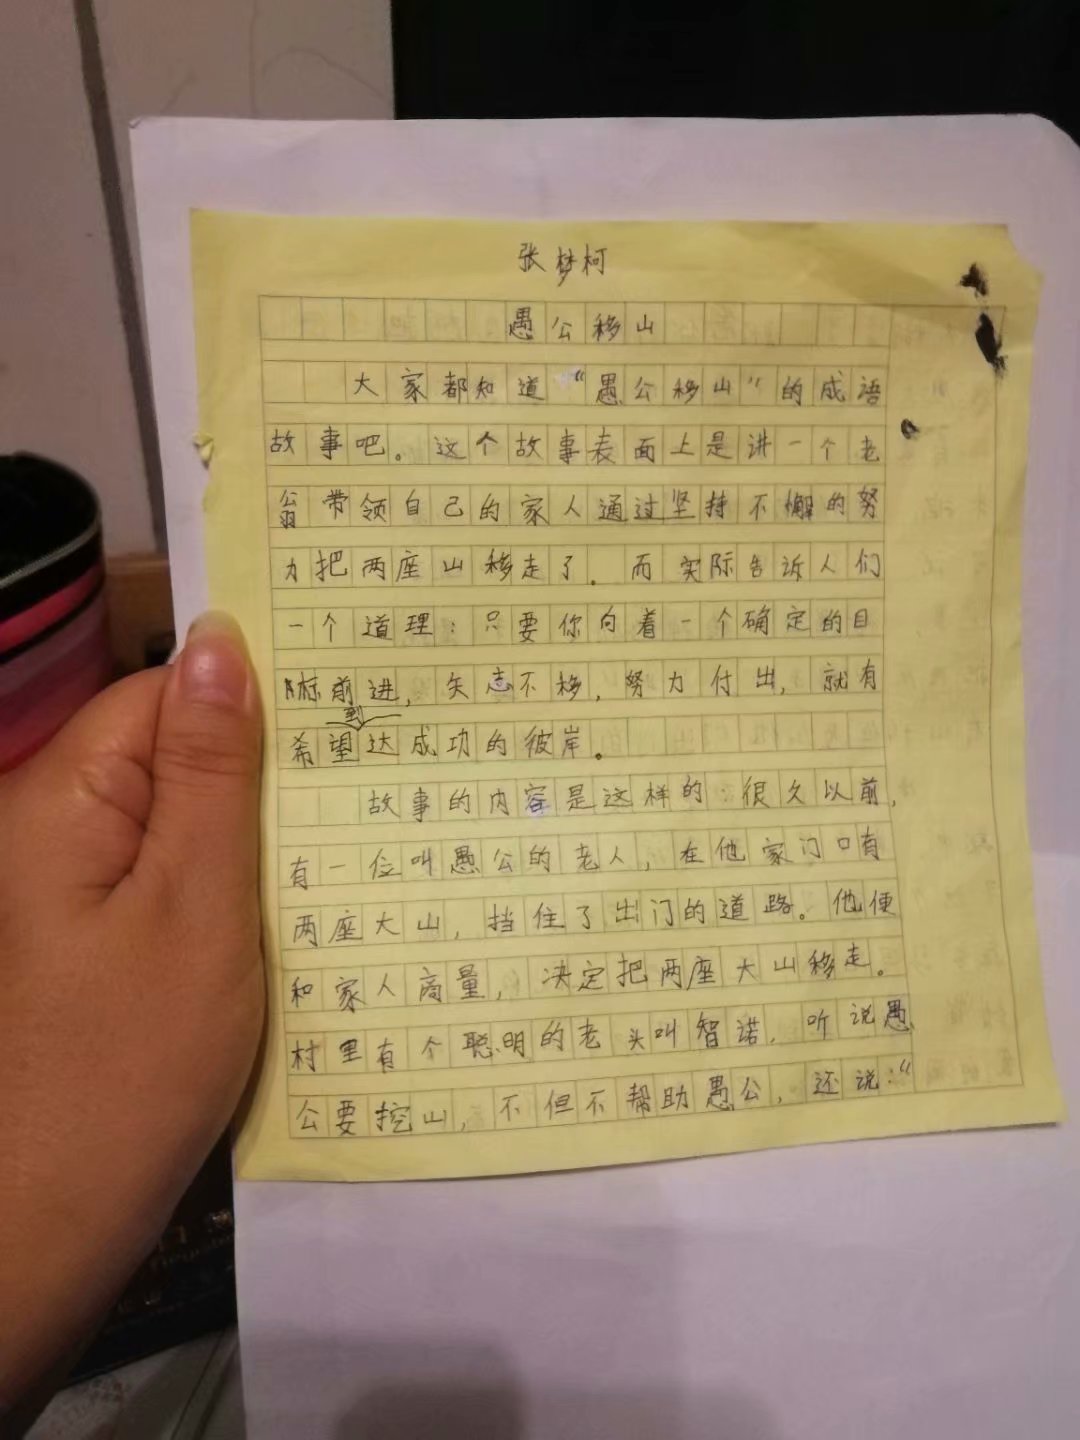 张梦柯
愚公移山
大家都知道“愚公移山”的成语
故事吧。这个故事表面上是讲一个老
翁带领自己的家人通过坚持不懈的努
力把两座山移走了。而实际告诉人们
一个道理：只要你向着一个确定的目
标前进，矢志不移，努力付出，就有
希望到达成功的彼岸。
故事的内容是这样的：很久以前，
有一位叫愚公的老人，在他家门口有
两座大山，挡住了出门的道路。他便
和家人商量，决定把两座大山移走。
村里有个聪明的老头叫智诺，听说愚
公要挖山，不但不帮助愚公，还说：“